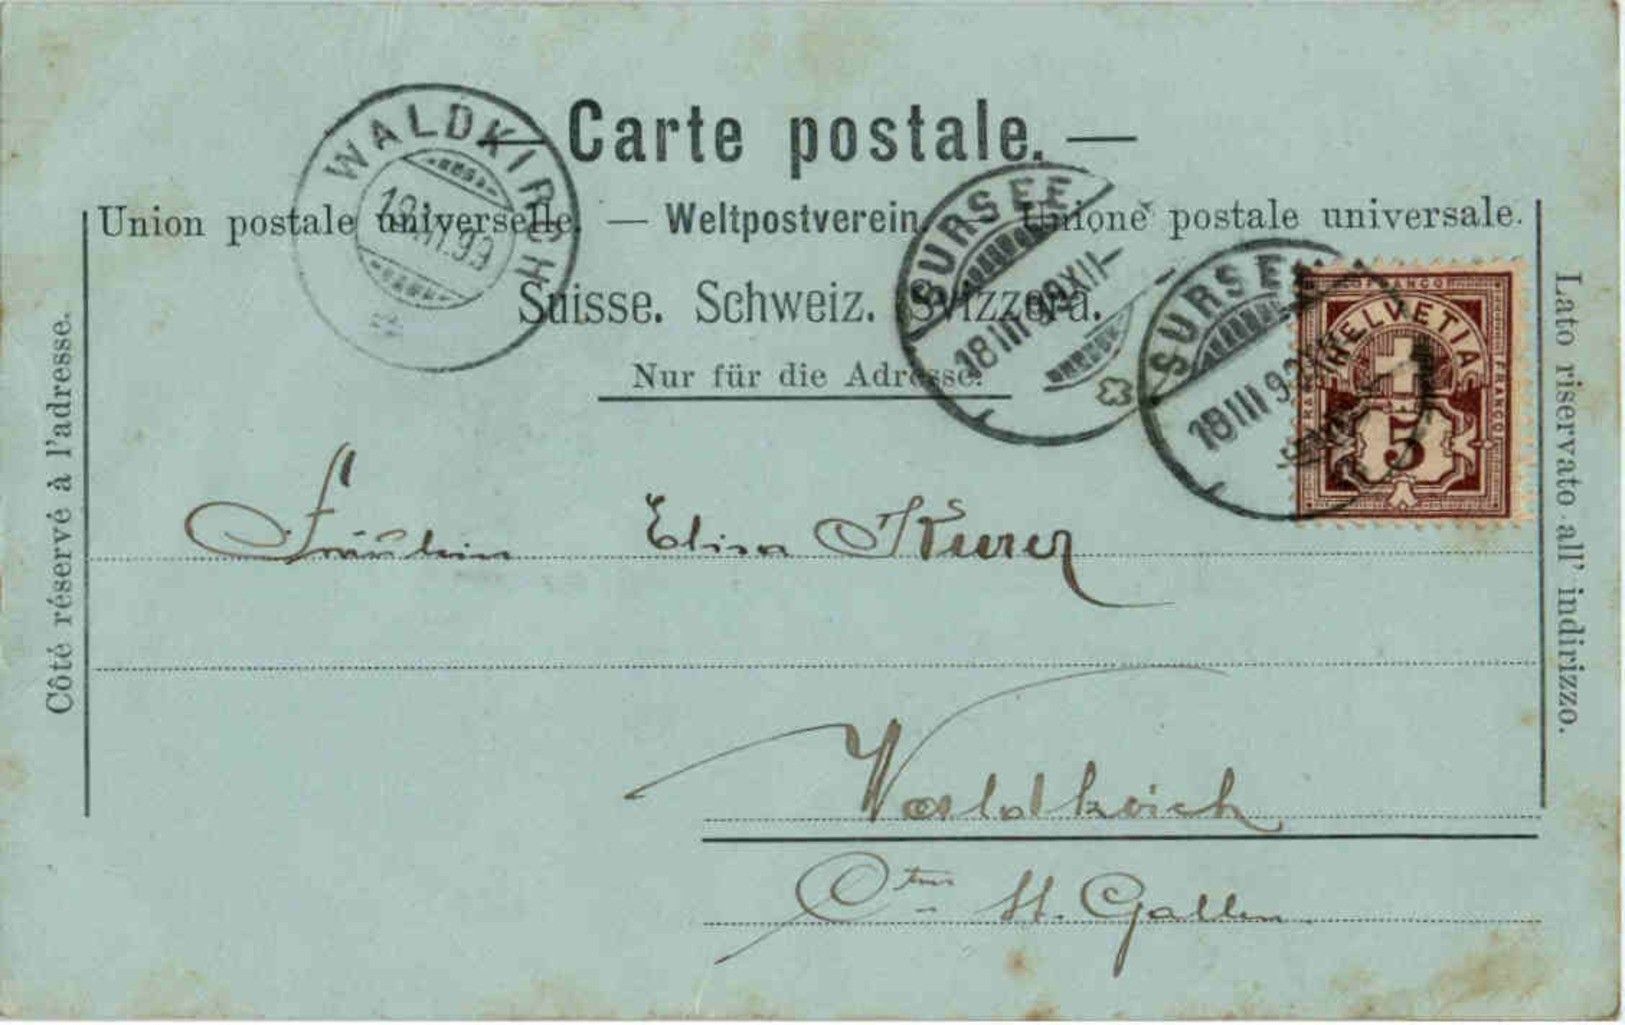 — Carte postale. —
Union postale universelle. — Weltpostverein. — Unione postale universale.
Suisse. Schweiz. Svizzera.
Nur für die Adresse.
Côté réservé à l'adresse.
Lato riservato all' indirizzo.
WALDKIRCH
SURSEE
18 III 99 XII–
SURSEE
18 III 9
FRANCO
HELVETIA
FRANCO
5
Fräulein Elisa
Waldkirch
Ctns St. Gallen